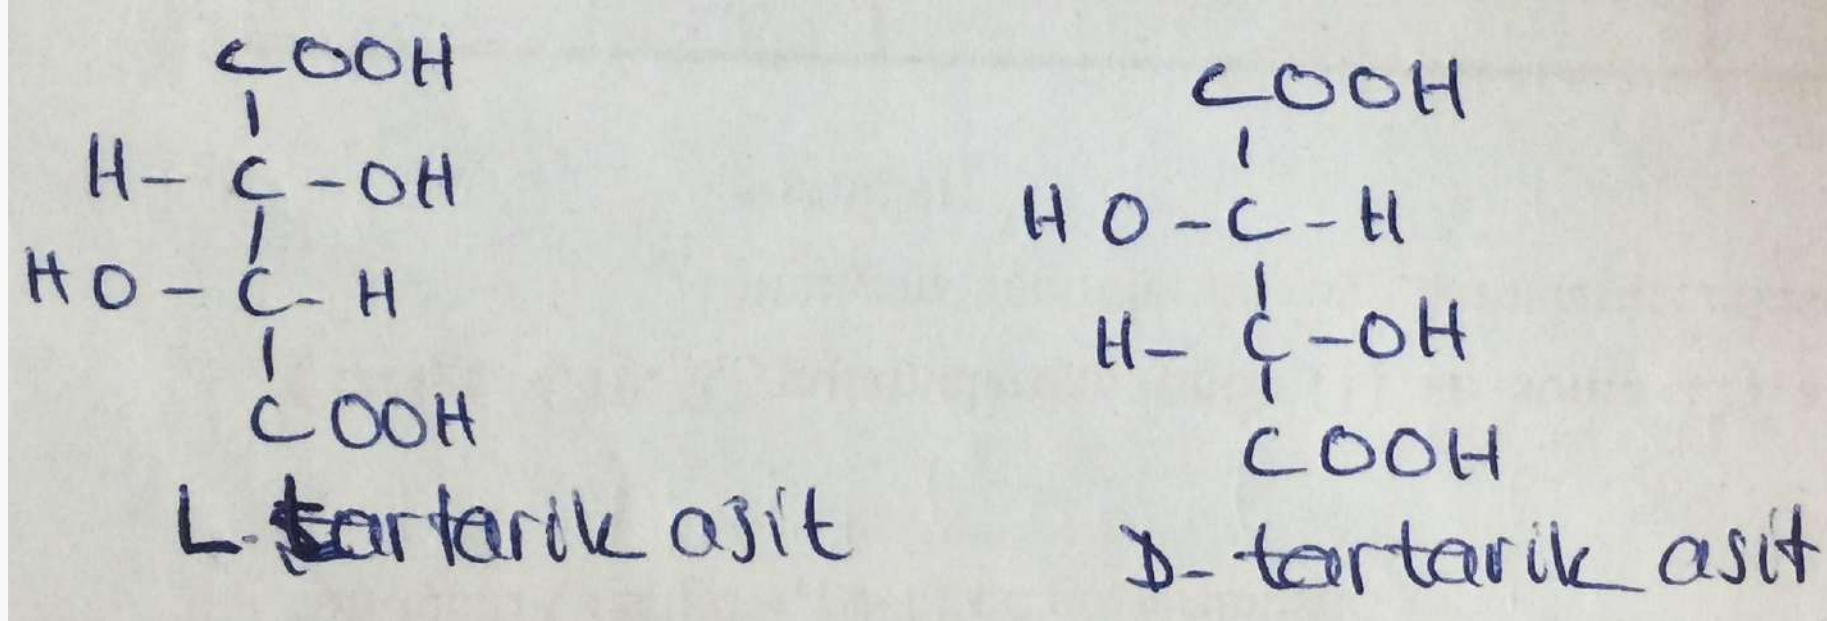 COOH
H-C-OH
HO-C-H
COOH
L-tartarik asit
COOH
HO-C-H
H-C-OH
COOH
D-tartarik asit